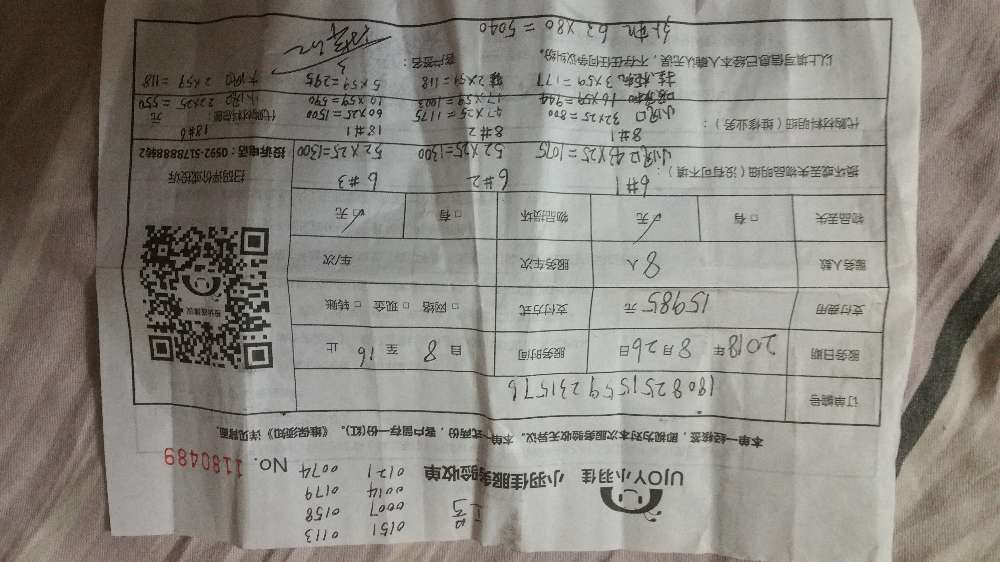 工号 0151 0113
0007 0158
0014 0179
0121 0074
UJOY小羽佳 小羽佳服务验收单 NO. 1180489
本单一经接签,即视为对本次服务验收无异议。本单一式两份,客户留存一份(红)。《维保须知》详见背面.
订单编号 1808251559231576
服务日期 2018年8月26日 服务时间 自 8 至 16 止
支付费用 15985 元 支付方式 □ 网络 □ 现金 □ 转账
服务人数 8人 服务车次 车/次
物品丢失 □ 有 ☑ 无 物品损坏 □ 有 ☑ 无
损坏或丢失物品明细(没有可不填): 6#1 6#2 6#3
小风口 43×25=1075 52×25=1300 52×25=1300
代购材料明细(维修业务): 8#1 8#2 18#1 18#6
小风口 32×25=800 47×25=1175 60×25=1500 小风口 22×25=550
代购材料总额: 元
16×59=944 17×59=1003 10×59=590
挂机 3×59=177 2×59=118 5×59=295 大风口 2×59=118
以上填写信息已经本人确认无误,不存在任何争议纠纷。 客户签名:
外机 63×80=5040
扫码评价或投诉
投诉电话:0592-5178888转2